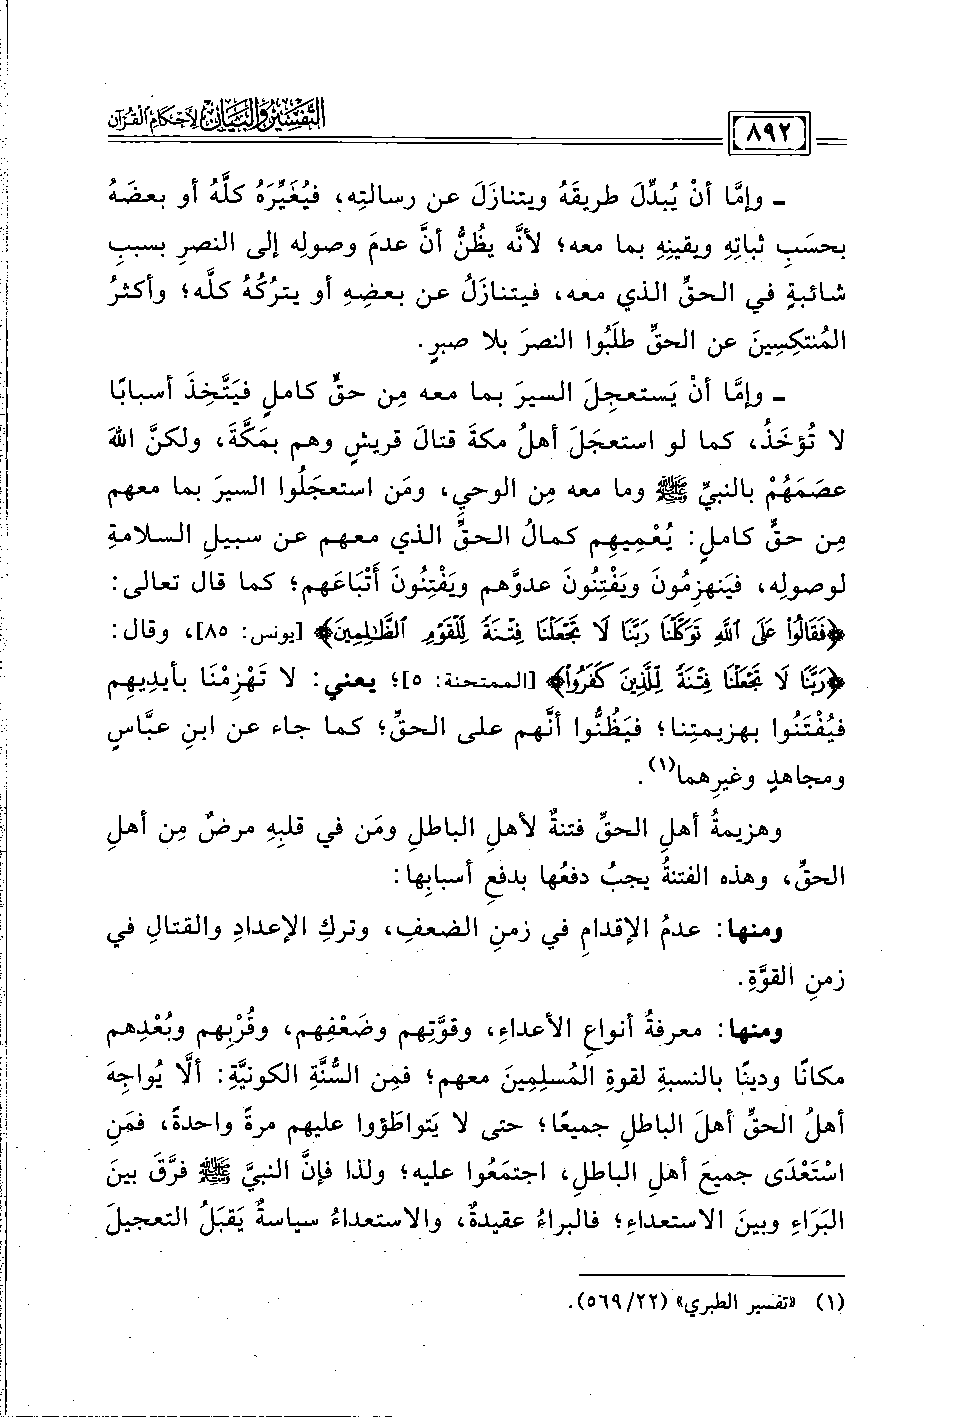 التفسير والبيان لأحكام القرآن
٨٩٢
ـ وإمَّا أنْ يُبدِّلَ طريقَهُ ويتنازَلَ عن رسالتِه، فيُغَيِّرَهُ كلَّهُ أو بعضَهُ
بحسَبِ ثباتِهِ ويقينِهِ بما معه؛ لأنَّه يظُنُّ أنَّ عدمَ وصولِه إلى النصرِ بسببِ
شائبةٍ في الحقِّ الذي معه، فيتنازَلُ عن بعضِهِ أو يتركُهُ كلَّه؛ وأكثرُ
المُنتكِسِينَ عن الحقِّ طلَبُوا النصرَ بلا صبرٍ.
ـ وإمَّا أنْ يَستعجِلَ السيرَ بما معه مِن حقٍّ كاملٍ فيَتَّخِذَ أسبابًا
لا تُؤخَذُ، كما لو استعجَلَ أهلُ مكةَ قتالَ قريشٍ وهم بمَكَّةَ، ولكنَّ اللهَ
عصَمَهُمْ بالنبيِّ ﷺ وما معه مِن الوحيِ، ومَن استعجَلُوا السيرَ بما معهم
مِن حقٍّ كاملٍ: يُعْمِيهِم كمالُ الحقِّ الذي معهم عن سبيلِ السلامةِ
لوصولِه، فيَنهزِمُونَ ويَفْتِنُونَ عدوَّهم ويَفْتِنُونَ أَتْبَاعَهم؛ كما قال تعالى:
﴿فَقَالُواْ عَلَى ٱللَّهِ تَوَكَّلْنَا رَبَّنَا لَا تَجْعَلْنَا فِتْنَةً لِّلْقَوْمِ ٱلظَّٰلِمِينَ﴾ [يونس: ٨٥]، وقال:
﴿رَبَّنَا لَا تَجْعَلْنَا فِتْنَةً لِّلَّذِينَ كَفَرُواْ﴾ [الممتحنة: ٥]؛ يعني: لا تَهْزِمْنَا بأيدِيهِم
فيُفْتَنُوا بهزيمتِنا؛ فيَظُنُّوا أنَّهم على الحقِّ؛ كما جاء عن ابنِ عبَّاسٍ
ومجاهدٍ وغيرِهما(١).
وهزيمةُ أهلِ الحقِّ فتنةٌ لأهلِ الباطلِ ومَن في قلبِهِ مرضٌ مِن أهلِ
الحقِّ، وهذه الفتنةُ يجبُ دفعُها بدفعِ أسبابِها:
ومنها: عدمُ الإقدامِ في زمنِ الضعفِ، وتركِ الإعدادِ والقتالِ في
زمنِ القوَّةِ.
ومنها: معرفةُ أنواعِ الأعداءِ، وقوَّتِهم وضَعْفِهم، وقُرْبِهم وبُعْدِهم
مكانًا ودينًا بالنسبةِ لقوةِ المُسلِمِينَ معهم؛ فمِن السُّنَّةِ الكونيَّةِ: ألَّا يُواجِهَ
أهلُ الحقِّ أهلَ الباطلِ جميعًا؛ حتى لا يَتواطَؤوا عليهم مرةً واحدةً، فمَنِ
اسْتَعْدَى جميعَ أهلِ الباطلِ، اجتمَعُوا عليه؛ ولذا فإنَّ النبيَّ ﷺ فرَّقَ بينَ
البَرَاءِ وبينَ الاستعداءِ؛ فالبراءُ عقيدةٌ، والاستعداءُ سياسةٌ يَقبَلُ التعجيلَ
(١) «تفسير الطبري» (٢٢/ ٥٦٩).